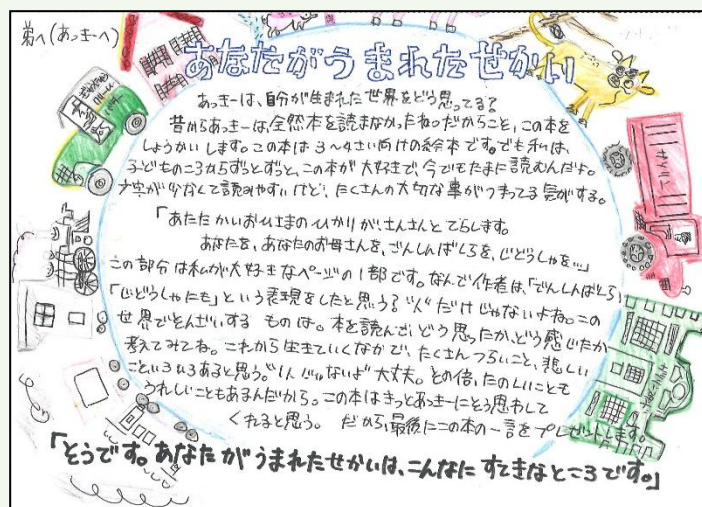 弟へ(あっきーへ)
あなたがうまれたせかい
あっきーは、自分が生まれた世界をどう思ってる?
昔からあっきーは、全然本を読まなかったね。だからこそ、この本を
しょうかいします。この本は3〜4さい向けの絵本です。でも私は、
子どものころからずっとずっと、この本が大好きで、今でもたまに読むんだよ。
文字が少なくて読みやすいけど、たくさんの大切な事がつまってる気がする。
「あたたかいおひさまのひかりが、さんさんとてらします。
あなたを、あなたのお母さんを、でんしんばしらを、じどうしゃを…」
この部分は私が大好きなページの1部です。なんで作者は、「でんしんばしら」
「じどうしゃにも」という表現をしたと思う?"人"だけじゃないよね。この
世界でそんざいするものは。本を読んで、どう思ったか、どう感じたか
考えてみてね。これから生きていくなかで、たくさんつらいこと、悲しい
こといろいろあると思う。"1人じゃないよ"大丈夫。その倍、たのしいことも
うれしいこともあるんだから。この本はきっとあっきーにそう思わして
くれると思う。だから、最後にこの本の一言をプレゼントします。
「そうです。あなたがうまれたせかいは、こんなにすてきなところです。」